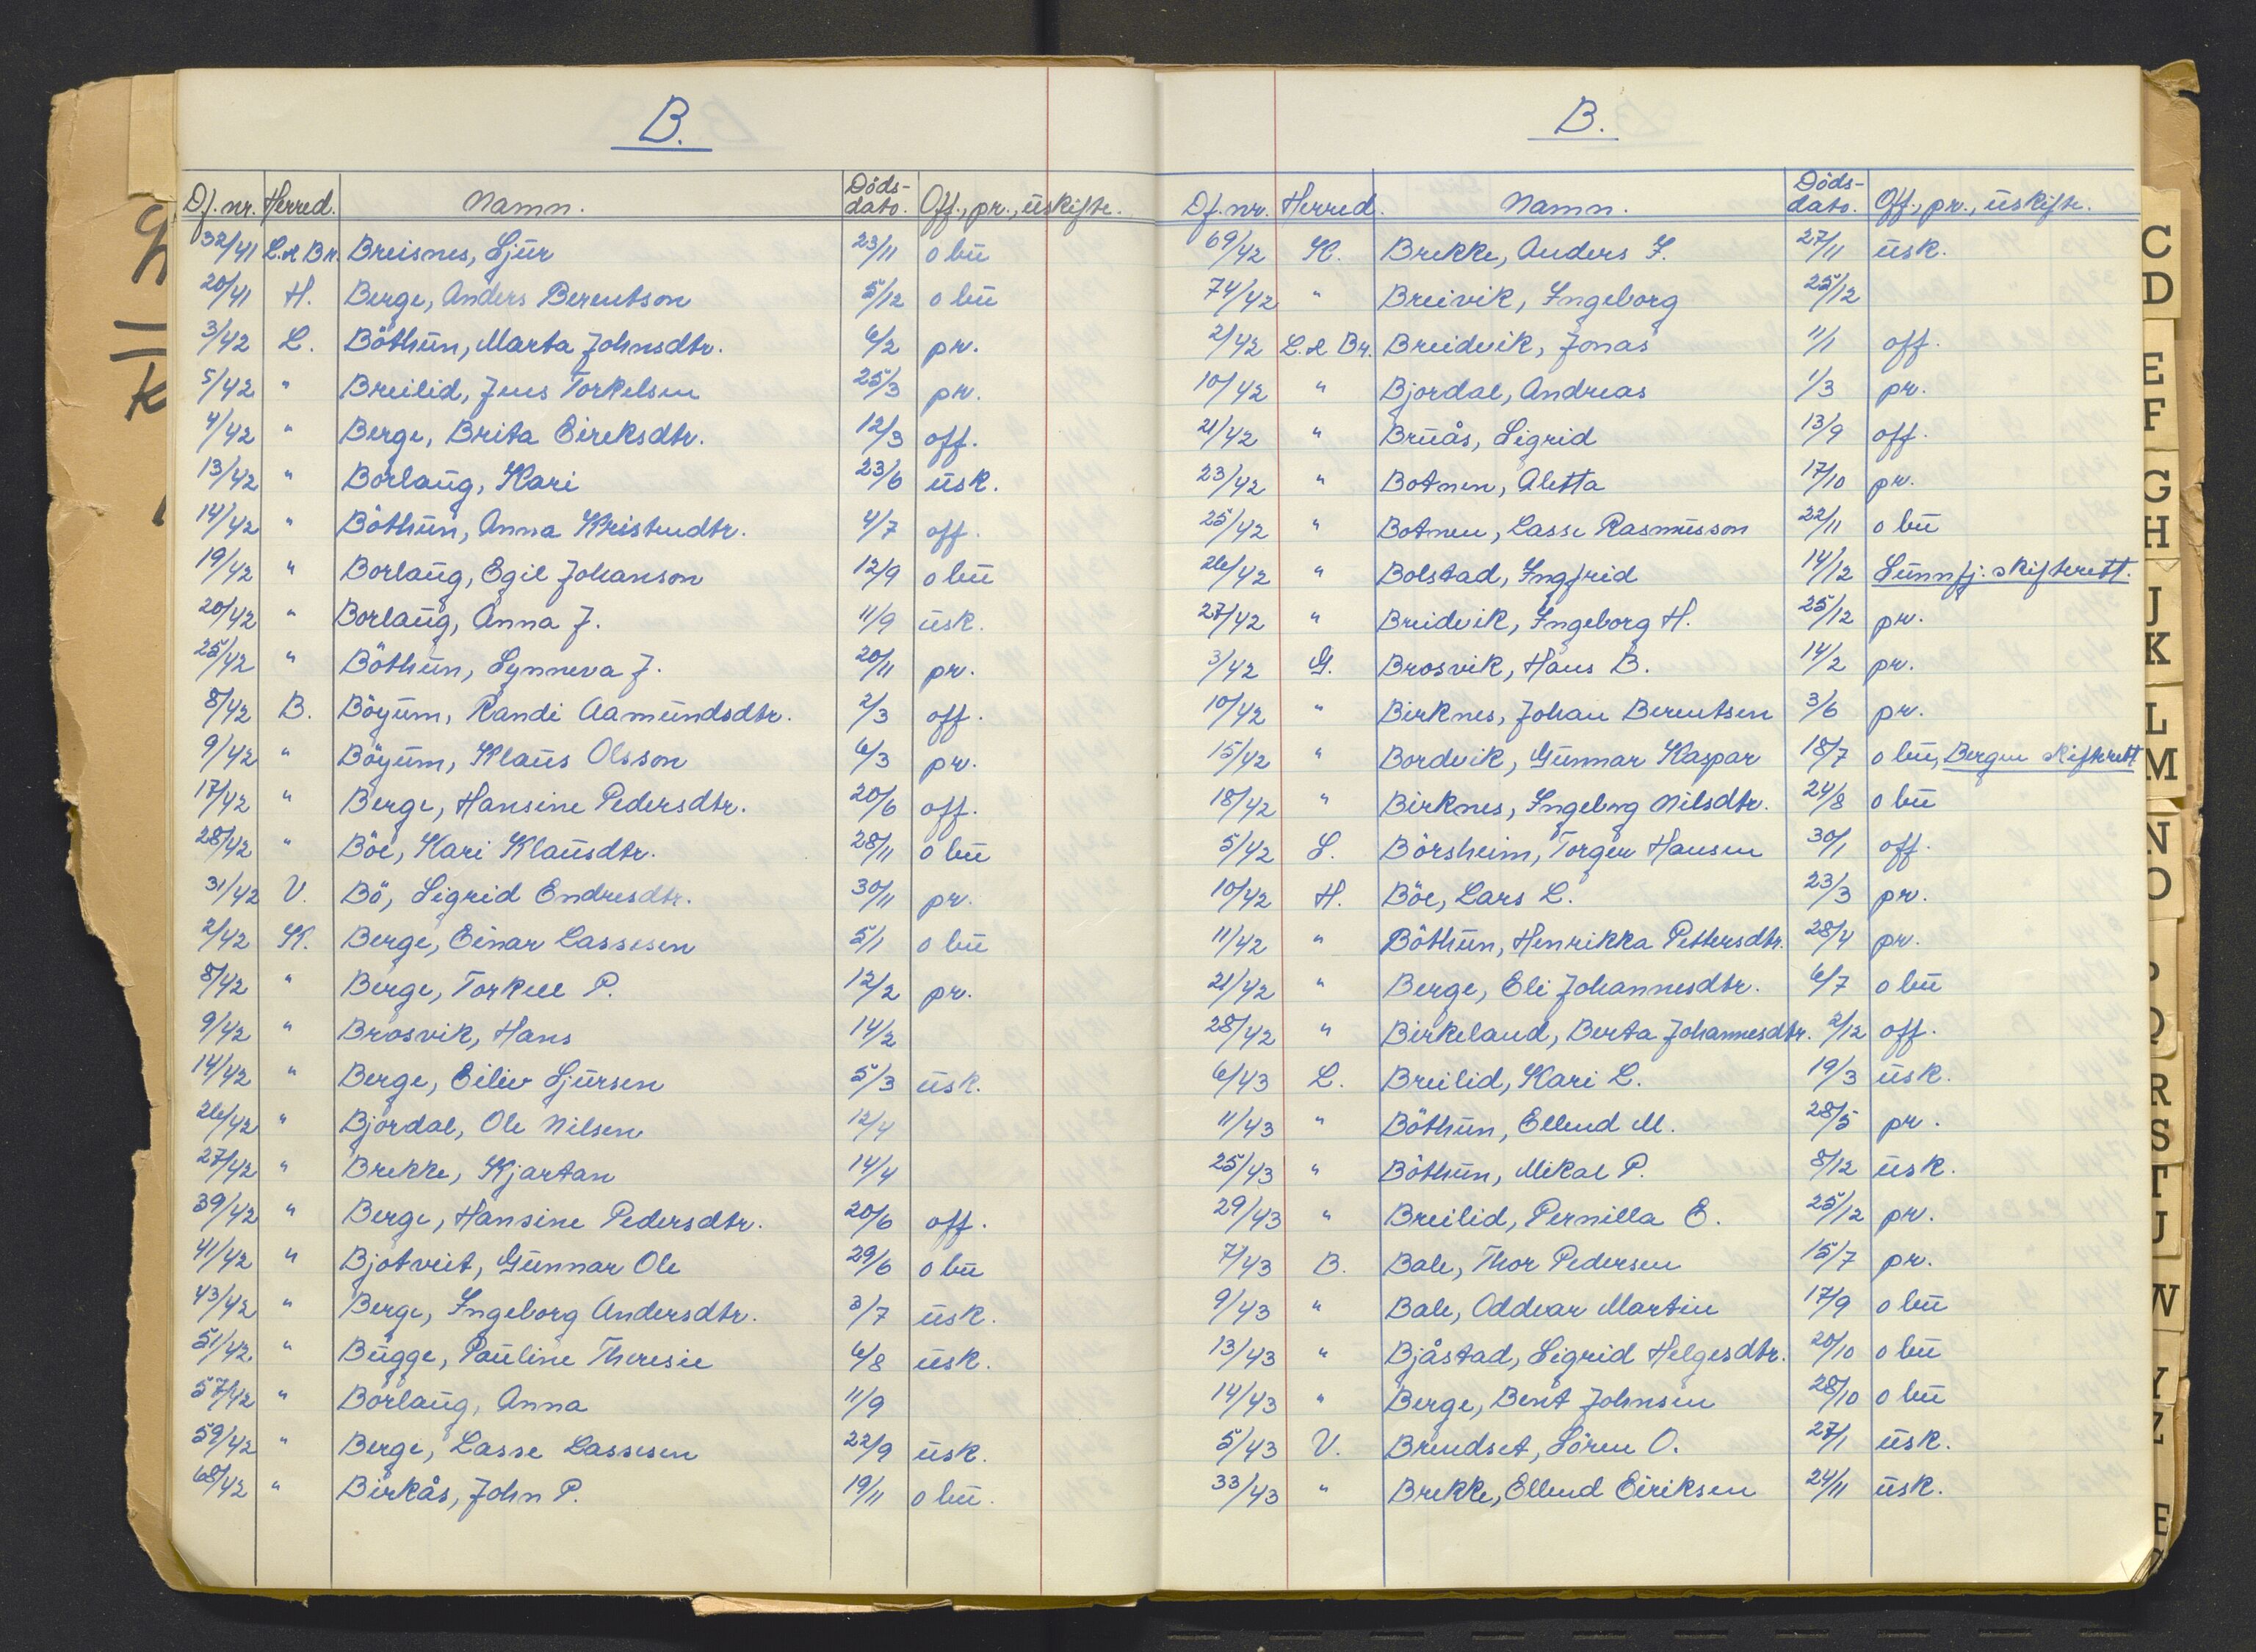 B.
Df. nr. Herred. Namn. Döds-dato. Off., pr., uskifte.
32/41 L. & Br. Breisnes, Sjur 23/11 o bu
20/41 H. Berge, Anders Berentson 5/12 o bu
3/42 L. Böthun, Marta Johnsdtr. 6/2 pr.
5/42 " Breilid, Jens Torkelsen 25/3 pr.
4/42 " Berge, Brita Eireksdtr. 12/3 off.
13/42 " Borlaug, Kari 23/6 usk.
14/42 " Böthun, Anna Kristendtr. 4/7 off.
19/42 " Borlaug, Egil Johanson 12/9 o bu
20/42 " Borlaug, Anna J. 11/9 usk.
25/42 " Böthun, Synneva J. 20/11 pr.
8/42 B. Böyum, Randi Aamundsdtr. 2/3 off.
9/42 " Böyum, Klaus Olsson 6/3 pr.
17/42 " Berge, Hansine Pedersdtr. 20/6 off.
28/42 " Böe, Kari Klausdtr. 28/11 o bu
31/42 V. Bö, Sigrid Endresdtr. 30/11 pr.
2/42 K. Berge, Einar Lassesen 5/1 o bu
8/42 " Berge, Torkell P. 12/2 pr.
9/42 " Brosvik, Hans 14/2
14/42 " Berge, Eiliv Sjursen 5/3 usk.
26/42 " Bjordal, Ole Nilsen 12/4
27/42 " Brekke, Kjartan 14/4
39/42 " Berge, Hansine Pedersdtr. 20/6 off.
41/42 " Bjotveit, Gunnar Ole 29/6 o bu
43/42 " Berge, Ingeborg Andersdtr. 3/7 usk.
51/42 " Bugge, Pauline Theresie 6/8 usk.
57/42 " Borlaug, Anna 11/9
59/42 " Berge, Lasse Lassesen 22/9 usk.
68/42 " Birkås, John P. 19/11 o bu.
B.
Df. nr. Herred. Namn. Döds-dato. Off., pr., uskifte.
69/42 K. Brekke, Anders I. 27/11 usk.
74/42 " Breivik, Ingeborg 25/12
2/42 L. & Br. Breidvik, Jonas 11/1 off.
10/42 " Bjordal, Andreas 1/3 pr.
21/42 " Bruås, Sigrid 13/9 off.
23/42 " Botnen, Aletta 17/10 pr.
25/42 " Botnen, Lasse Rasmusson 22/11 o bu
26/42 " Bolstad, Ingfrid 14/12 Sunnfj. skifterett.
27/42 " Breidvik, Ingeborg H. 25/12 pr.
3/42 G. Brosvik, Hans B. 14/2 pr.
10/42 " Birknes, Johan Berentsen 3/6 pr.
15/42 " Bordvik, Gunnar Kaspar 18/7 o bu, Bergen skifterett
18/42 " Birknes, Ingebrg Nilsdtr. 24/8 o bu
5/42 S. Börsheim, Torger Hansen 30/1 off.
10/42 H. Böe, Lars L. 23/3 pr.
11/42 " Böthun, Henrikka Pettersdtr. 28/4 pr.
21/42 " Berge, Eli Johannesdtr. 6/7 o bu
28/42 " Birkeland, Berta Johannesdtr. 2/12 off.
6/43 L. Breilid, Kari L. 19/3 usk.
11/43 " Böthun, Ellend M. 28/5 pr.
25/43 " Böthun, Mikal P. 8/12 usk.
29/43 " Breilid, Pernilla E. 25/12 pr.
7/43 B. Bale, Thor Pedersen 15/7 pr.
9/43 " Bale, Oddvar Martin 17/9 o bu
13/43 " Bjåstad, Sigrid Helgesdtr. 20/10 o bu
14/43 " Berge, Bent Johnsen 28/10 o bu
5/43 V. Brendset, Sören O. 27/1 usk.
33/43 " Brekke, Ellend Eiriksen 24/11 usk.
C
D
E
F
G
H
J
K
L
M
N
O
Q
R
S